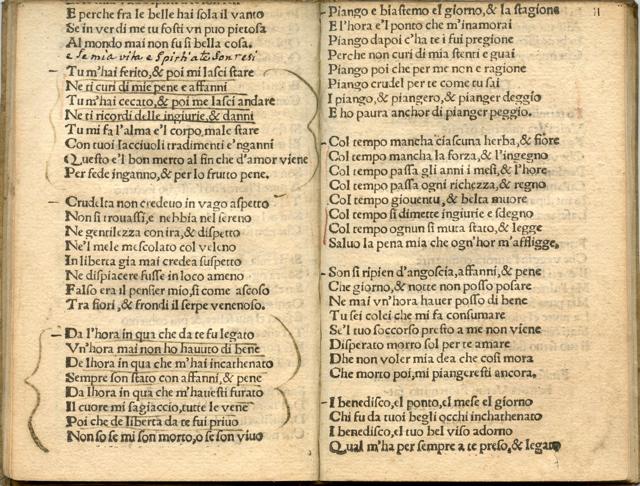 E perche fra le belle hai sola il vanto
Se in ver di me tu fosti vn puo pietosa
Al mondo mai non fu si bella cosa.
e se mia vita e
Tu m'hai ferito,& poi mi lasci stare
Ne ti curi di mie pene e affanni
Tu m'hai cecato,& poi me lasci andare
Ne ti ricordi delle ingiurie,& danni
Tu mi fa l'alma e'l corpo male stare
Con tuoi lacciuoli tradimenti e'nganni
Questo e'l bon merto al fin che d'amor viene
Per fede inganno,& per lo frutto pene.
Crudelta non credeuo in vago aspetto
Non si trouassi,e nebbia nel sereno
Ne gentilezza con ira,& dispetto
Ne'l mele mescolato col veleno
In liberta gia mai credea suspetto
Ne dispiacere fusse in loco ameno
Falso era il pensier mio,si come ascoso
Tra fiori,& frondi il serpe venenoso.
Da l'hora in qua che da te fu legato
Vn'hora mai non ho hauuto di bene
De lhora in qua che m'hai incathenato
Sempre son stato con affanni,& pene
Da lhora in qua che m'hauesti furato
Il cuore mi sagiaccio,tutte le vene
Poi che de liberta da te fui priuo
Non so se mi son morto,o se son viuo
Piango e biastemo el giorno,& la stagione
E l'hora e'l ponto che m'inamorai
Piango dapoi c'ha te i fui pregione
Perche non curi di mia stenti e guai
Piango poi che per me non e ragione
Piango crudel per te come tu sai
I piango,& piangero,& pianger deggio
E ho paura anchor di pianger peggio.
Col tempo mancha ciascuna herba,& fiore
Col tempo mancha la forza,& l'ingegno
Col tempo passa gli anni i mesi,& l'hore
Col tempo passa ogni richezza,& regno
Col tempo giouentu,& belta muore
Col tempo si dimette ingiurie e sdegno
Col tempo ognun si muta stato,& legge
Saluo la pena mia che ogn'hor m'affligge.
Son si ripien d'angoscia,affanni,& pene
Che giorno,& notte non posso posare
Ne mai vn'hora hauer posso di bene
Tu sei colei che mi fa consumare
Se'l tuo soccorso presto a me non viene
Disperato morro sol per te amare
Dhe non voler mia dea che cosi mora
Che morto poi,mi piangeresti ancora.
I benedisco,el ponto,el mese el giorno
Chi fu da tuoi begli occhi inchathenato
I benedisco,el tuo bel viso adorno
Qual m'ha per sempre a te preso,& legato